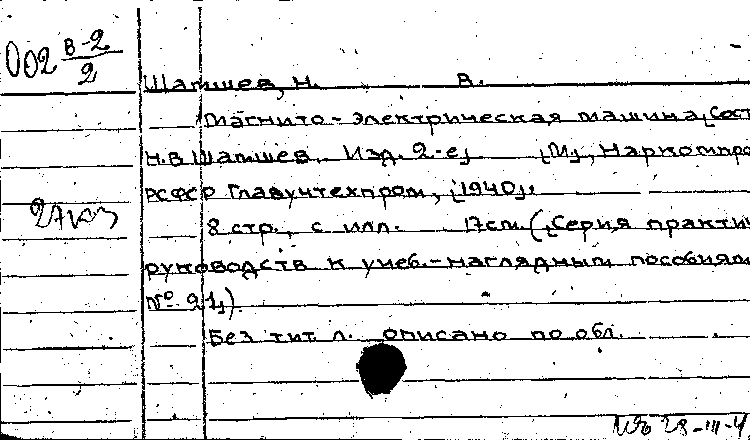 002 В-2/2
Шамшев, Н. В.
Магнито-электрическая машина [Сост
Н.В Шамшев. Изд. 2-е]. [М], Наркомпро
РСФСР Главучтехпром, [1940].
8 стр., с илл. 17см. ([Серия практич
руководств к учеб.-наглядным пособиям
№ 21])
Без тит л. описано по обл.
28-III-4